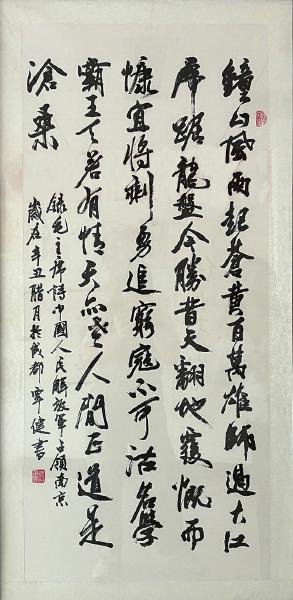 鐘山風雨起蒼黃百萬雄師過大江
虎踞龍盤今勝昔天翻地覆慨而
慷宜將剩勇追窮寇不可沽名學
霸王天若有情天亦老人間正道是
滄桑
錄毛主席詩中國人民解放軍占領南京
歲在辛丑腊月於成都寧健書